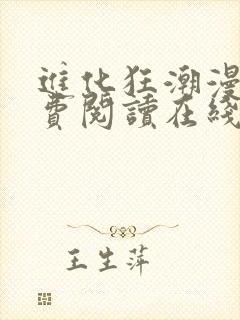 進化狂潮漫
費閱讀在綫
王生萍